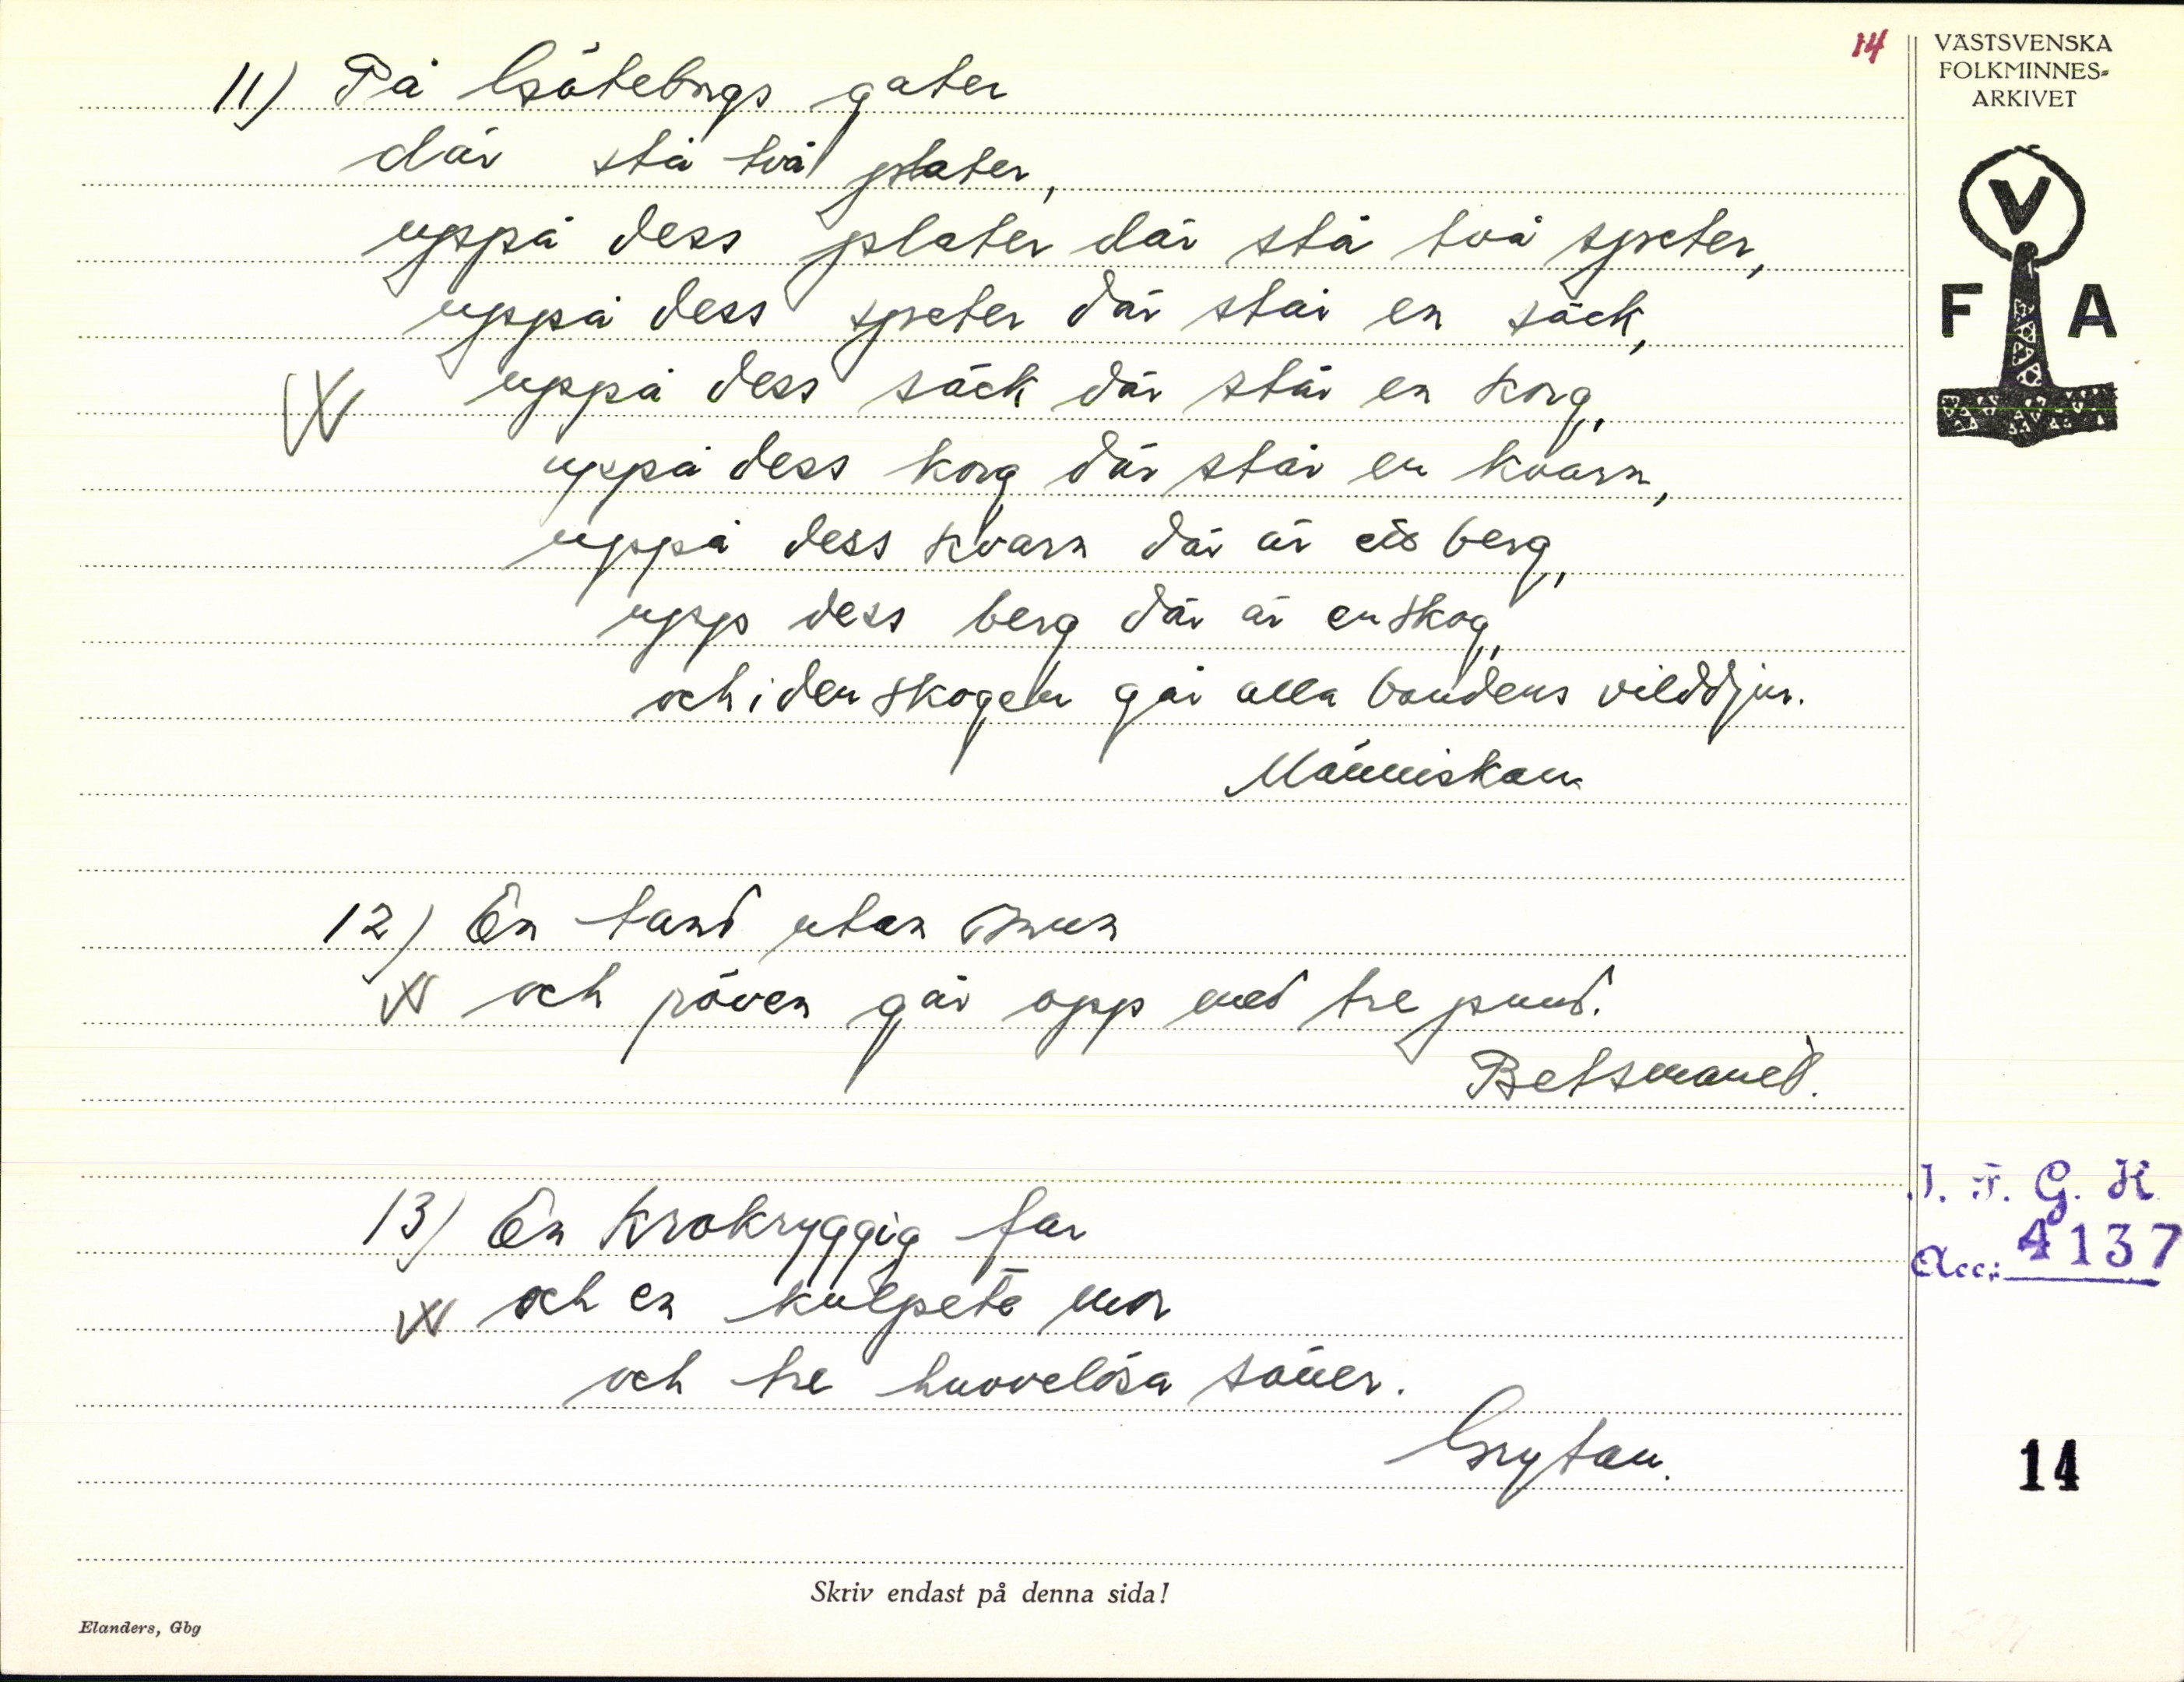 14
VÄSTSVENSKA
FOLKMINNES-
ARKIVET
V
F A
11) På Göteborgs gater
där stå två plater,
uppå dess plater där stå två speter,
uppå dess speter där står en säck,
uppå dess säck där står en korg,
uppå dess korg där står en kvarn,
uppå dess kvarn där är berg,
upp dess berg där är en skog,
och i den skogen går alla landens vilddjur.
Människan
12) En tand utan mun
och röven går opp med tre pund.
Betsmanet.
13) En krokryggig far
och en kulpetä mor
och tre huvvelösa söner.
Grytan.
I. F. G. H
Acc: 4137
14
Skriv endast på denna sida!
Elanders, Gbg